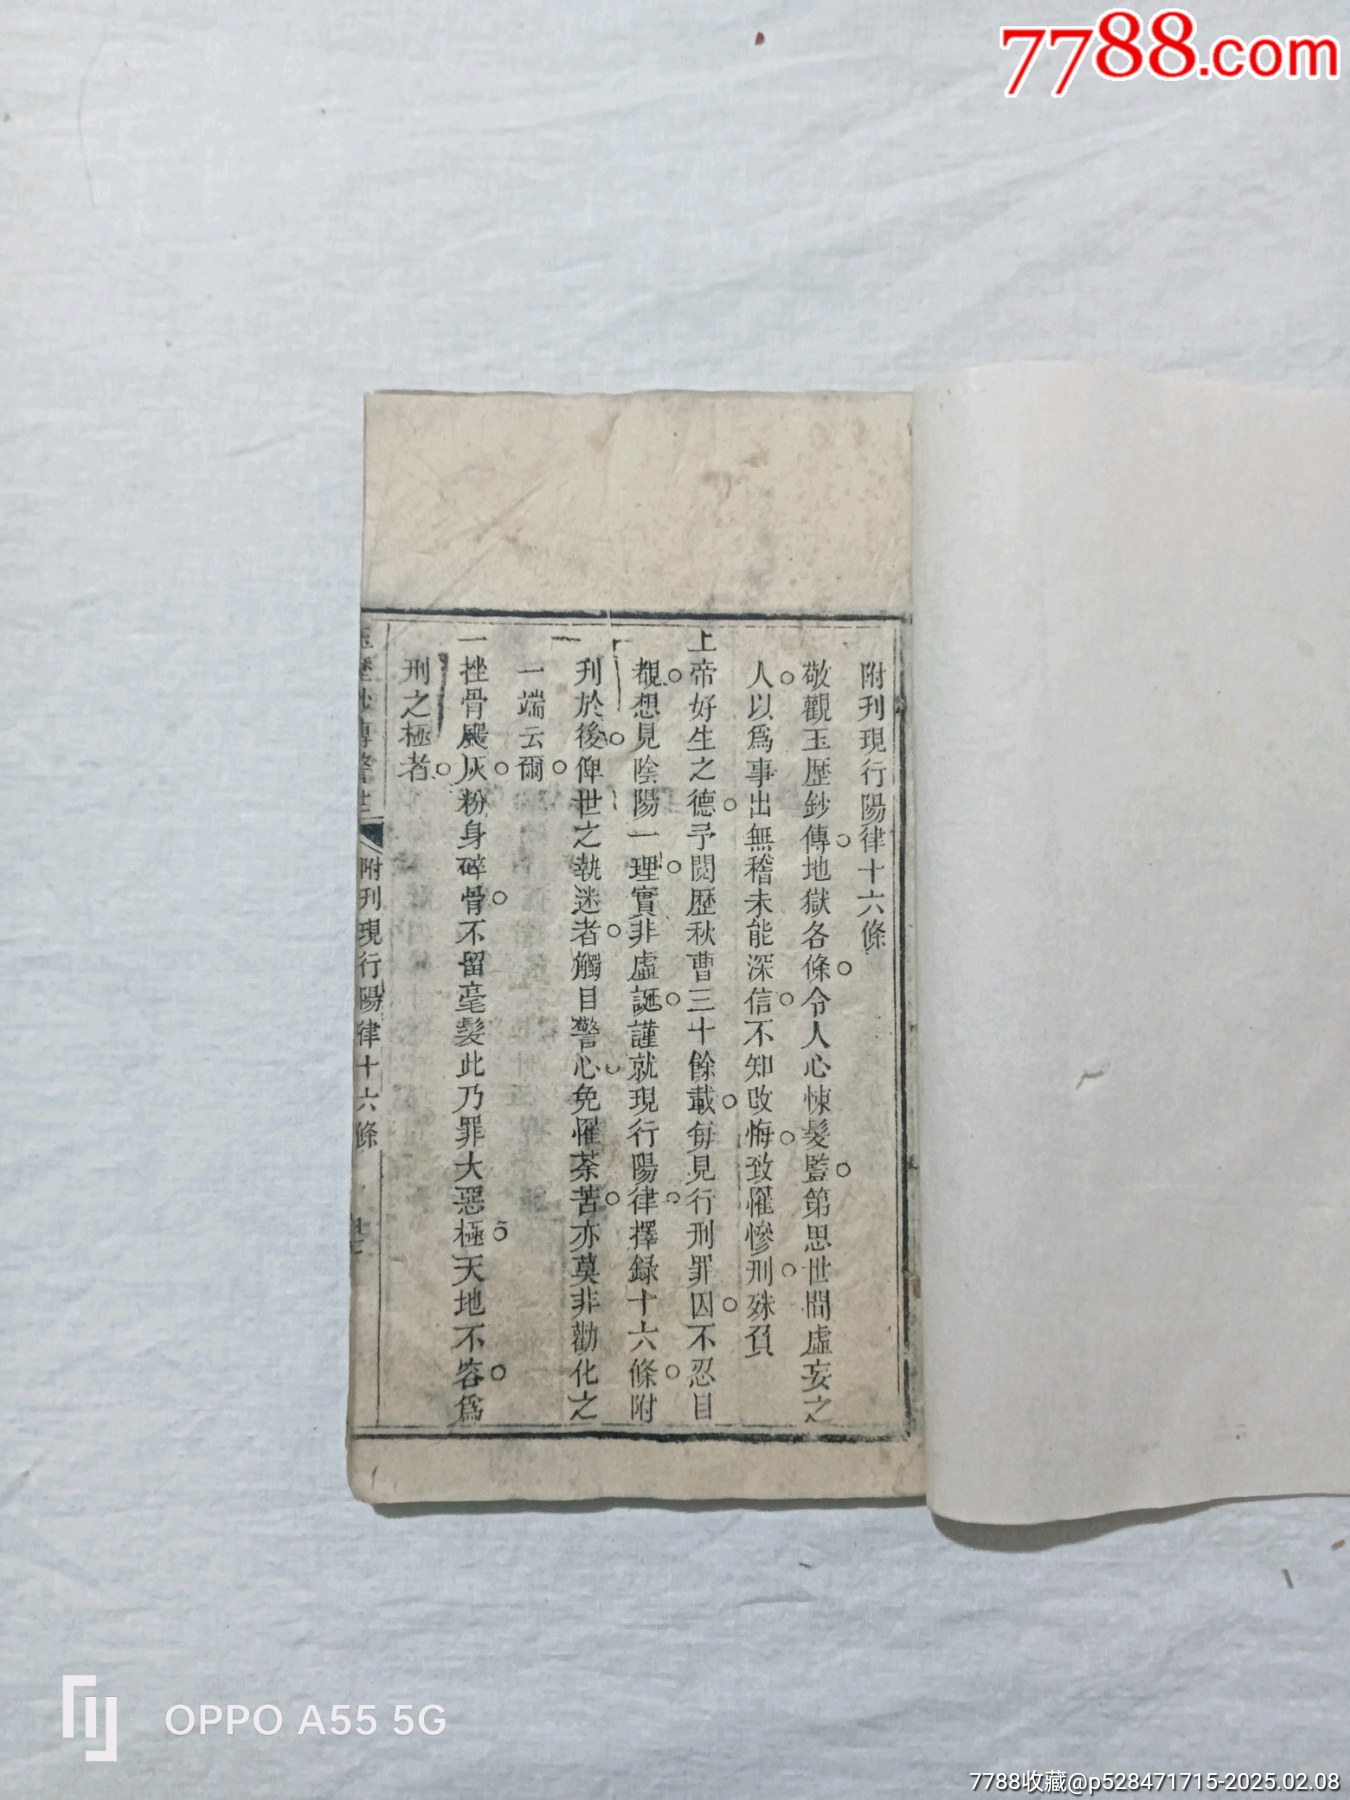 7788.com
附刊現行陽律十六條
敬觀玉歷鈔傳地獄各條令人心悚髮監第思世間虛妄之
人以爲事出無稽未能深信不知改悔致罹慘刑殊負
上帝好生之德予閱歷秋曹三十餘載每見行刑罪囚不忍目
覩想見陰陽一理實非虛誕謹就現行陽律擇録十六條附
刋於後俾世之執迷者觸目警心免罹荼苦亦莫非勸化之
一端云爾
一挫骨颺灰粉身碎骨不留毫髮此乃罪大惡極天地不容爲
刑之極者
玉歷鈔傳警世 附刊現行陽律十六條
OPPO A55 5G
7788收藏@p528471715-2025.02.08